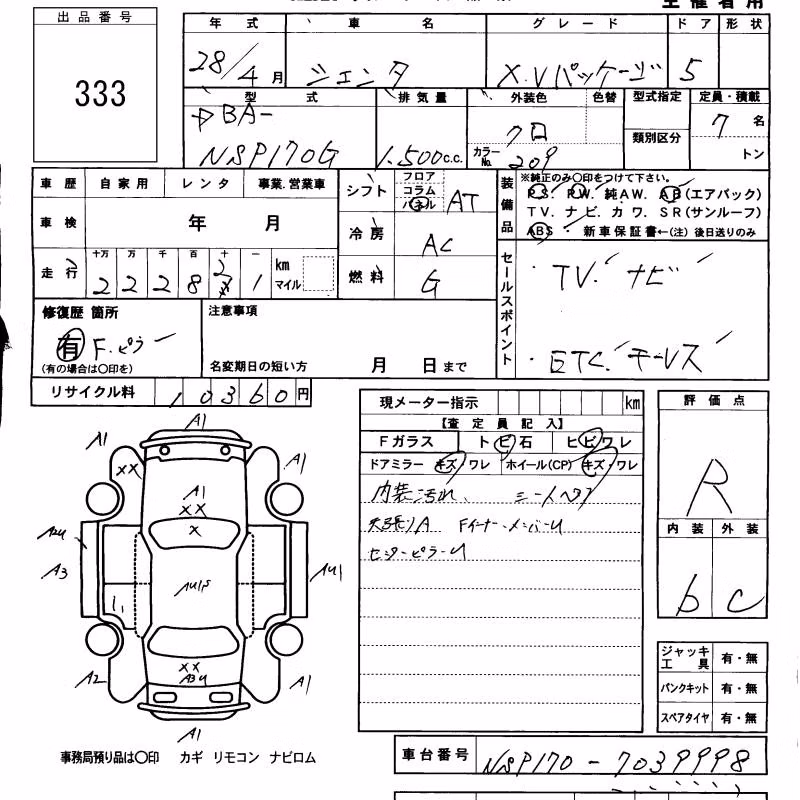 出品番号
333
年式 車名 グレード ドア 形状
28/4月 シエンタ X.Vパッケージ 5
型式 排気量 外装色 色替 型式指定 定員・積載
DBA-
NSP170G 1.500c.c. クロ 類別区分 7名
カラーNo. 209 トン
車歴 自家用 レンタ 事業.営業車
シフト フロア コラム パネル AT
装備品 ※純正のみ〇印をつけて下さい。
PS. PW. 純AW. AB(エアバック)
TV. ナビ. カワ. SR(サンルーフ)
ABS ・ 新車保証書←(注)後日送りのみ
車検 年 月
冷房 AC
走行 十万 万 千 百 十 一 km マイル
2 2 2 8 1
燃料 G
セールスポイント
・TV. ナビ
・ETC. キーレス
修復歴 箇所
有 F.ピラー
(有の場合は〇印を)
注意事項
名変期日の短い方 月 日まで
リサイクル料 10360円
現メーター指示 km
【査定員記入】
Fガラス トビ石 ヒビワレ
ドアミラー キズ/ワレ ホイール(CP) キズ・ワレ
内装汚れ、
天張りA Fインナーメンバーu
センターピラーu
評価点
R
内装 外装
b c
ジャッキ工具 有・無
パンクキット 有・無
スペアタイヤ 有・無
A1
A1
A1
XX
A1
XX
X
A2u
A3
AU1
A2
XX
A3u
A1
A1
事務局預り品は〇印 カギ リモコン ナビロム
車台番号 NSP170-7039998